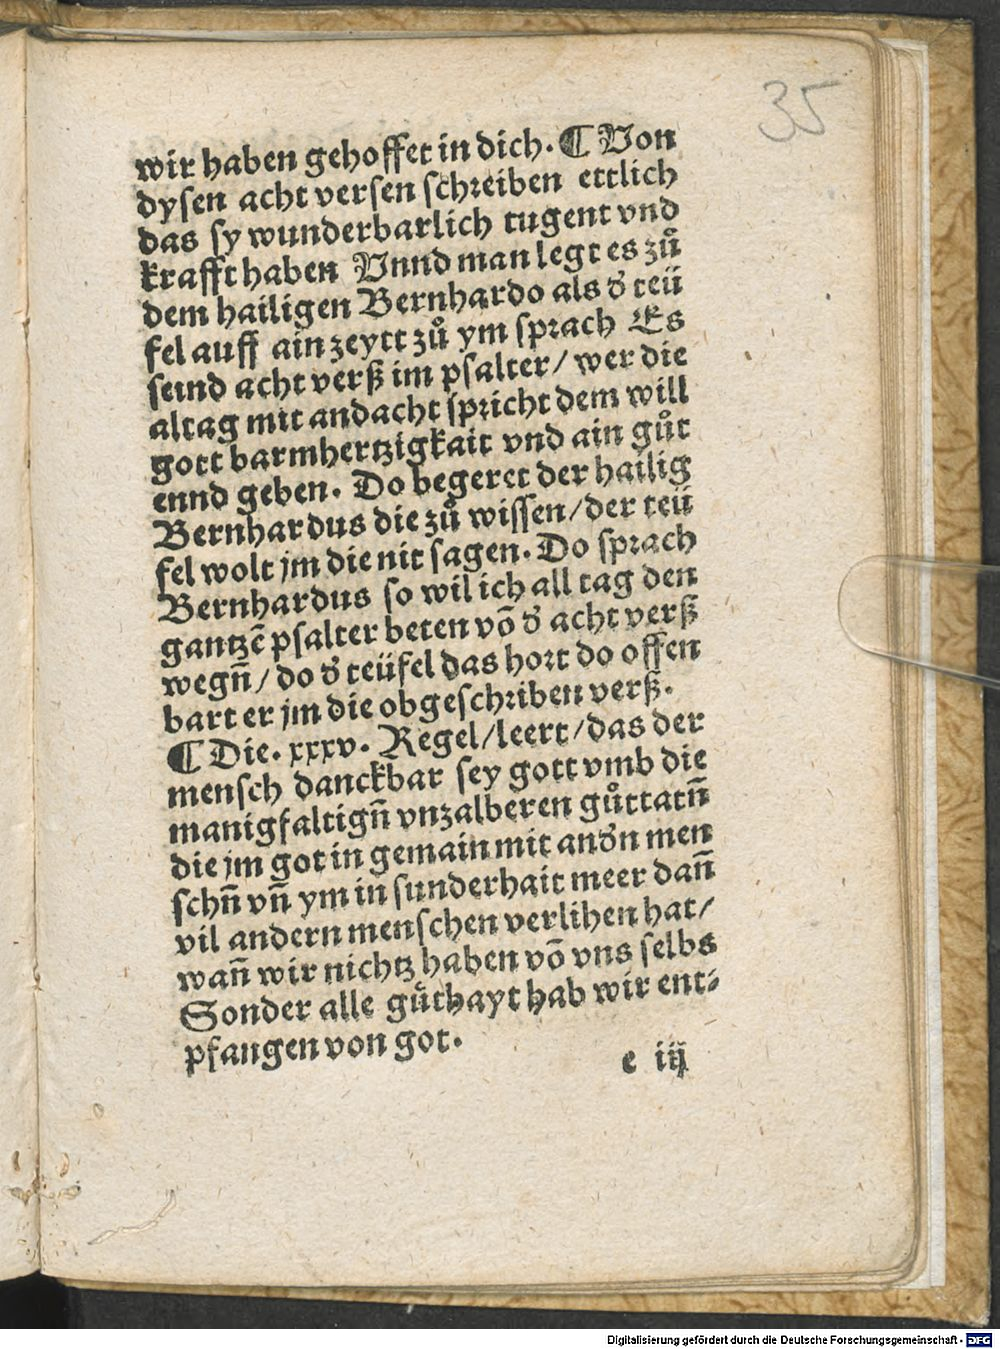 35
wir haben gehoffet in dich. ¶ Von
dysen acht versen schreiben ettlich
das sy wunderbarlich tugent vnd
krafft haben Vnnd man legt es zů
dem hailigen Bernhardo als d̕ teü
fel auff ain zeytt zů ym sprach Es
seind acht verß im psalter/ wer die
altag mit andacht spricht dem will
gott barmhertzigkait vnd ain gůt
ennd geben. Do begeret der hailig
Bernhardus die zů wissen/ der teü
fel wolt jm die nit sagen. Do sprach
Bernhardus so wil ich all tag den
gantzē psalter beten võ d̕ acht verß
wegñ/ do d̕ teüfel das hort do offen
bart er jm die obgeschriben verß.
¶ Die. xxxv. Regel/ leert/ das der
mensch danckbar sey gott vmb die
manigfaltigñ vnzalberen gůttatñ
die jm got in gemain mit and̕n men
schñ vñ ym in sunderhait meer dañ
vil andern menschen verlihen hat/
wañ wir nichtz haben võ vns selbs
Sonder alle gůthayt hab wir ent⸗
pfangen von got.
e iij
Digitalisierung gefördert durch die Deutsche Forschungsgemeinschaft - DFG